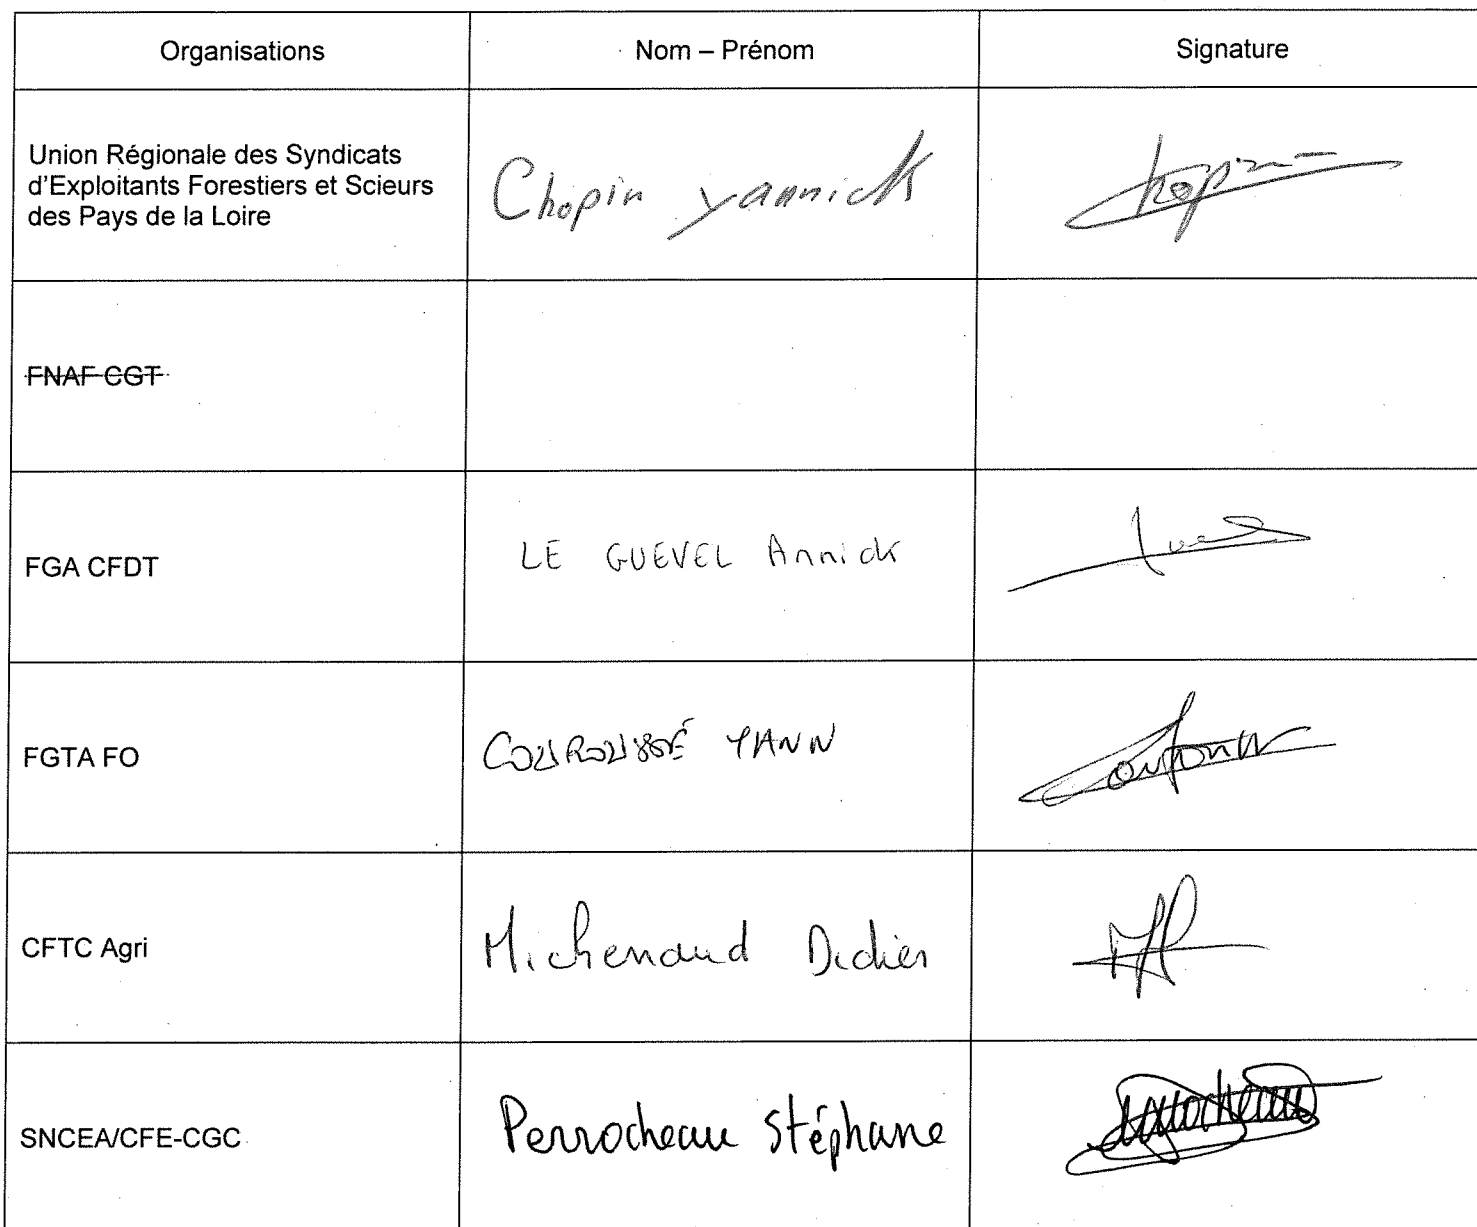 Organisations
Nom – Prénom
Signature
Union Régionale des Syndicats
d'Exploitants Forestiers et Scieurs
des Pays de la Loire
Chopin Yannick
Chopin
FNAF CGT
FGA CFDT
LE GUEVEL Annick
FGTA FO
COUROUSSÉ YANN
CFTC Agri
Michenaud Didier
SNCEA/CFE-CGC
Perrocheau Stéphane